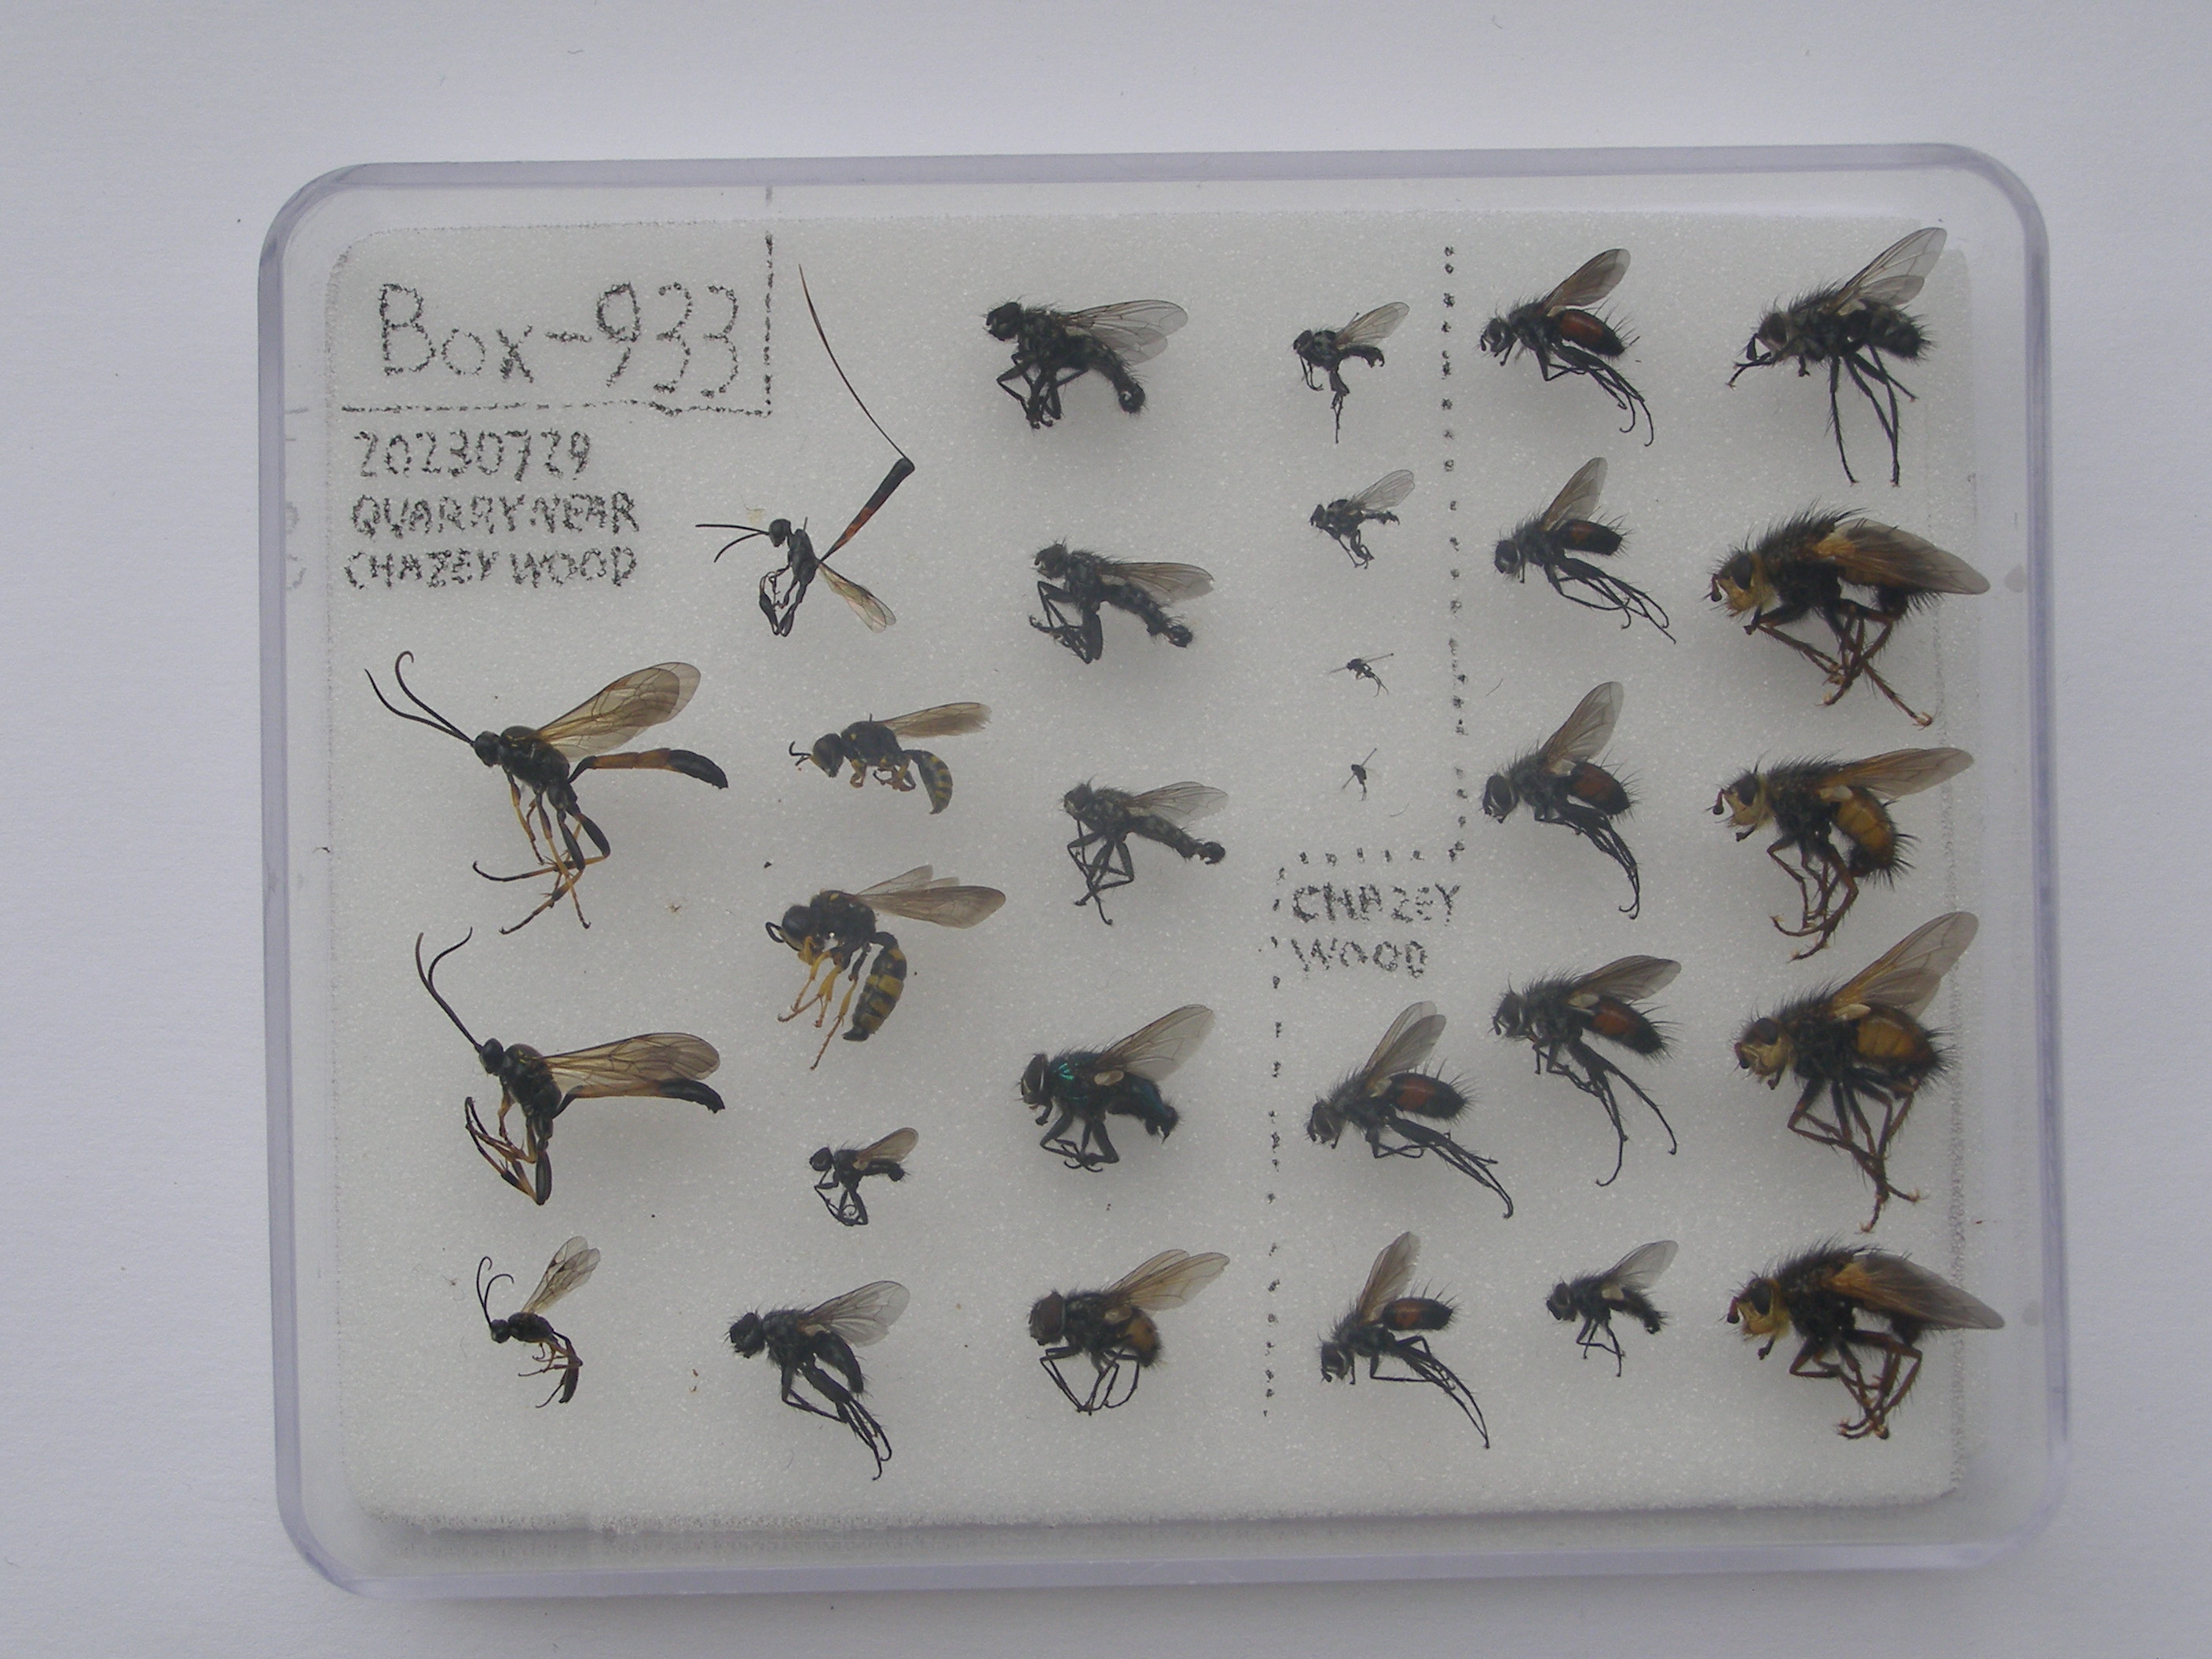 Box-933
20230729
QUARRY NEAR
CHAZEY WOOD
CHAZEY
WOOD